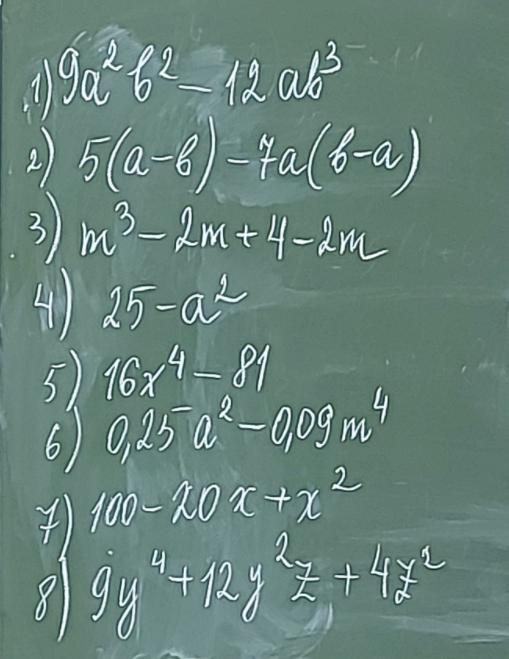 1) 9a²b² - 12ab³
2) 5(a-b) - 7a(b-a)
3) m³ - 2m + 4 - 2m
4) 25 - a²
5) 16x⁴ - 81
6) 0,25a² - 0,09m⁴
7) 100 - 20x + x²
8) 9y⁴ + 12y²z + 4z²